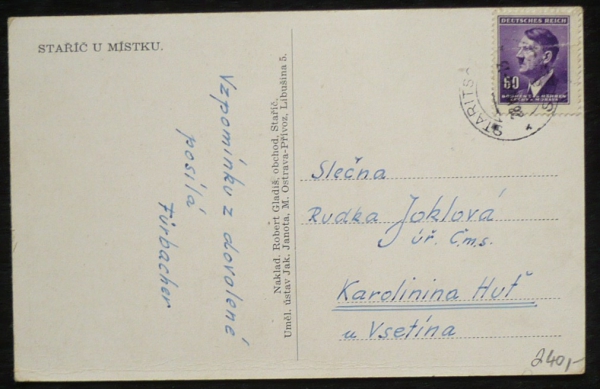 STAŘÍČ U MÍSTKU.
Vzpomínku z dovolené
posílá
Fürbacher
Naklad. Robert Gladiš, obchod, Stařič,
Uměl. ústav Jak. Janota, M. Ostrava-Přívoz, Libušina 5.
DEUTSCHES REICH
60
STARITSCH
Slečna
Rudka Joklová
úř. Č.m.s.
Karolinina Huť
u Vsetína
240,-